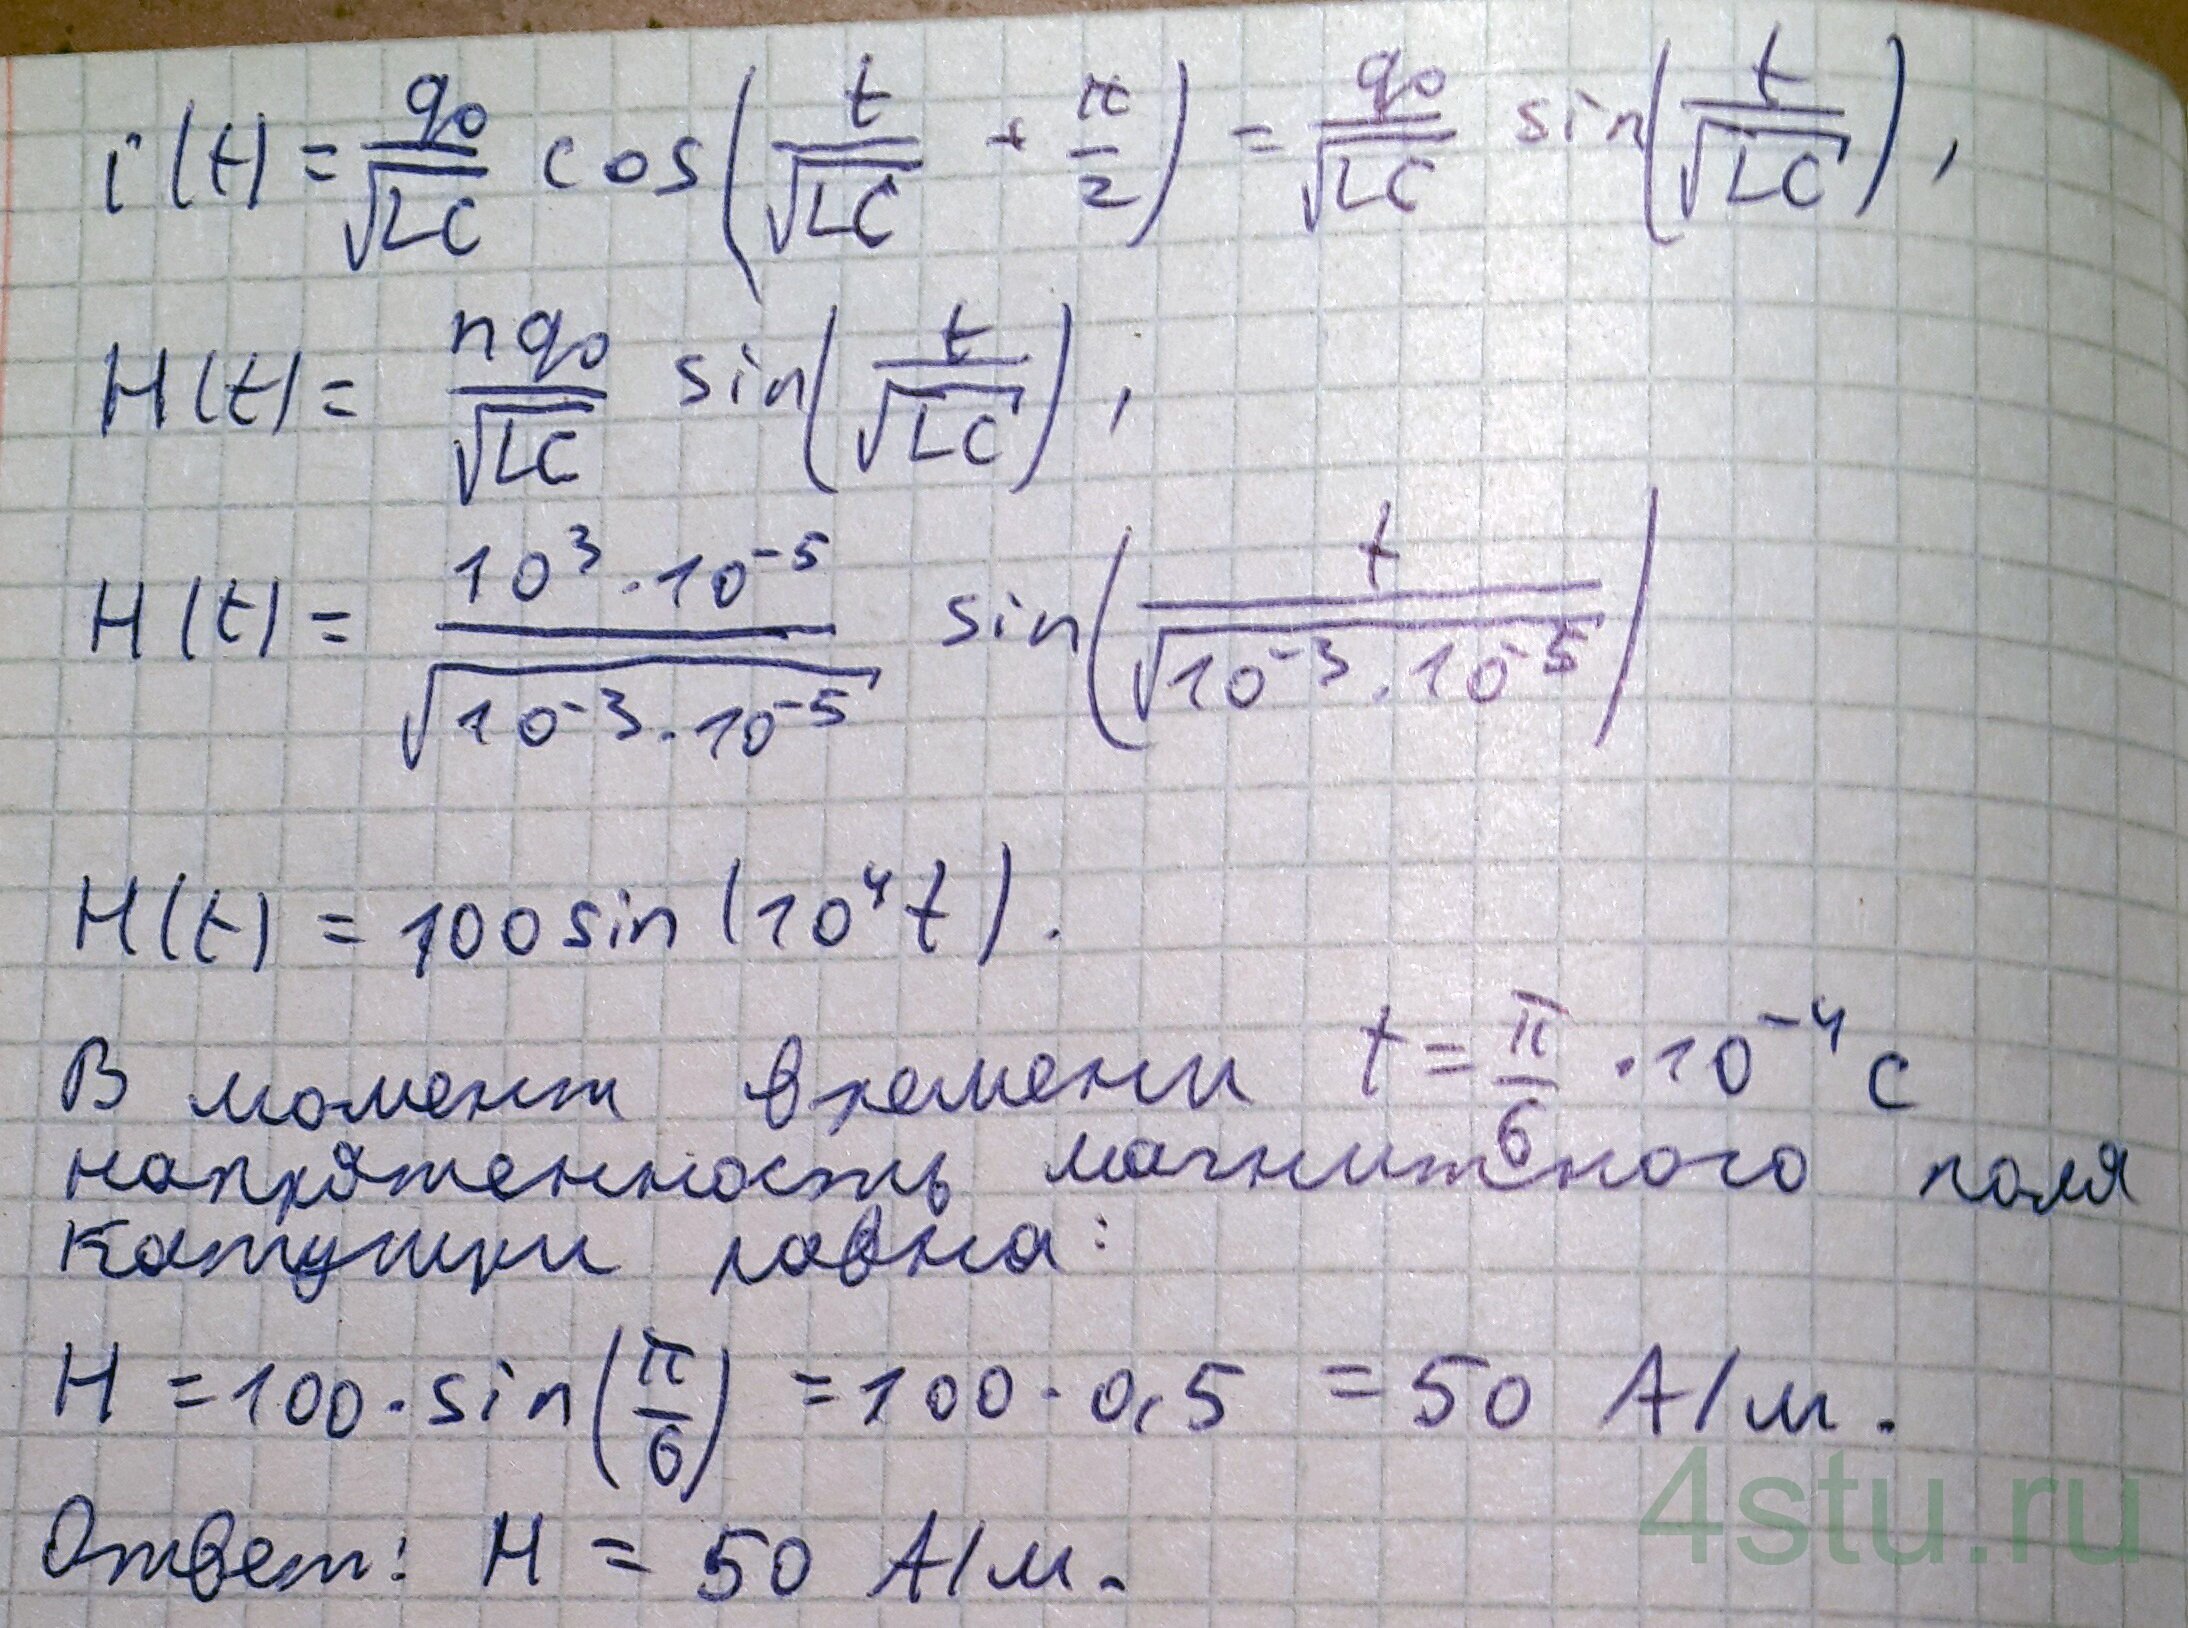 i(t) = q₀/√LC cos(t/√LC + π/2) = q₀/√LC sin(t/√LC),
H(t) = nq₀/√LC sin(t/√LC),
H(t) = 10³·10⁻⁵/√10⁻³·10⁻⁵ sin(t/√10⁻³·10⁻⁵)
H(t) = 100 sin(10⁴t).
В момент времени t = π/6 · 10⁻⁴ с
напряженность магнитного поля
катушки равна:
H = 100 · sin(π/6) = 100 · 0,5 = 50 А/м.
4stu.ru
Ответ: H = 50 А/м.